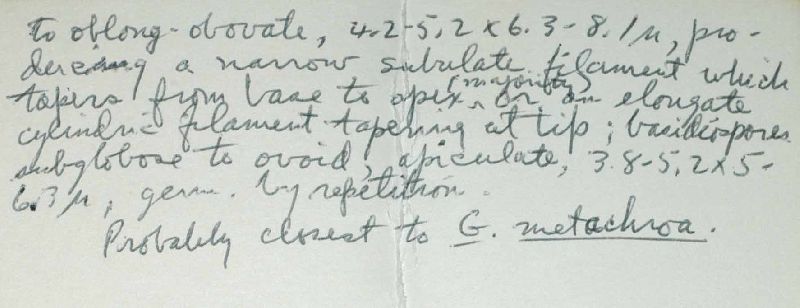 to oblong-obovate, 4.2-5.2 x 6.3-8.1 µ, pro-
ducing a narrow subulate filament which
tapers from base to apex (majority) or an elongate
cylindric filament tapering at tip; basidiospores
subglobose to ovoid, apiculate, 3.8-5.2 x 5-
6.3 µ, germ. by repetition.
Probably closest to G. metachroa.